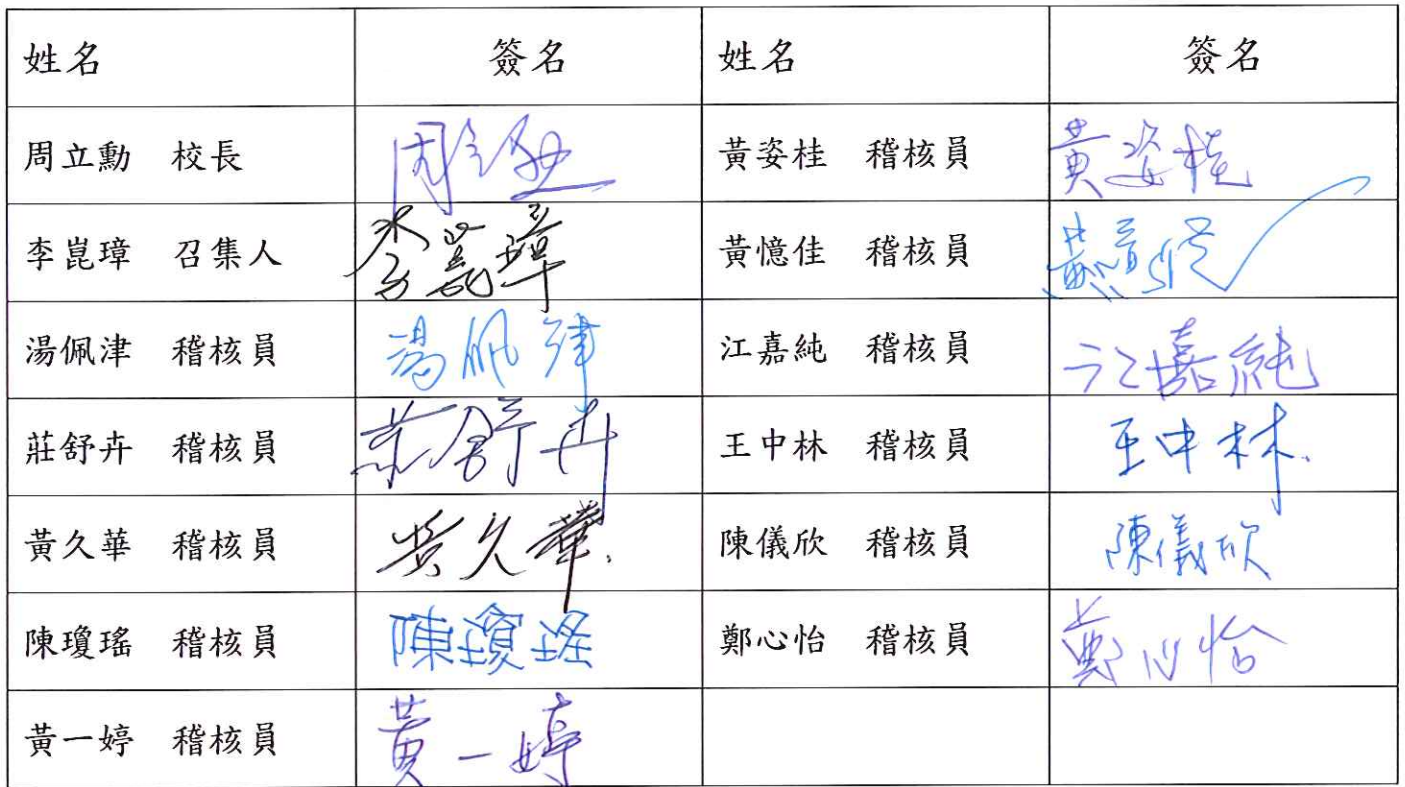 姓名 簽名 姓名 簽名
周立勳 校長 周立勳 黃姿桂 稽核員 黃姿桂
李崑璋 召集人 李崑璋 黃憶佳 稽核員 黃憶佳
湯佩津 稽核員 湯佩津 江嘉純 稽核員 江嘉純
莊舒卉 稽核員 莊舒卉 王中林 稽核員 王中林
黃久華 稽核員 黃久華 陳儀欣 稽核員 陳儀欣
陳瓊瑤 稽核員 陳瓊瑤 鄭心怡 稽核員 鄭心怡
黃一婷 稽核員 黃一婷